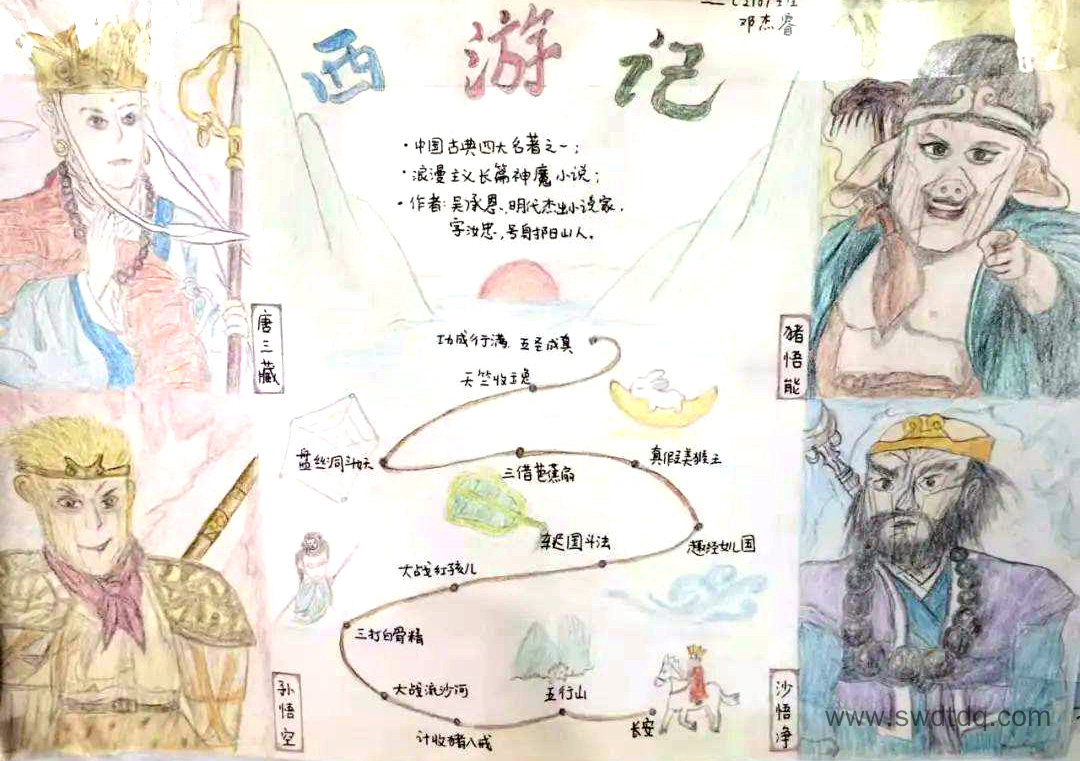 邓杰睿
西游记
·中国古典四大名著之一；
·浪漫主义长篇神魔小说；
·作者：吴承恩、明代杰出小说家，
字汝忠，号射阳山人。
唐三藏
猪悟能
功成行满 五圣成真
天竺收玉兔
盘丝洞斗妖
三借芭蕉扇
真假美猴王
趣经女儿国
车迟国斗法
大战红孩儿
三打白骨精
大战流沙河
计收猪八戒
五行山
长安
孙悟空
沙悟净
www.swdtdq.com